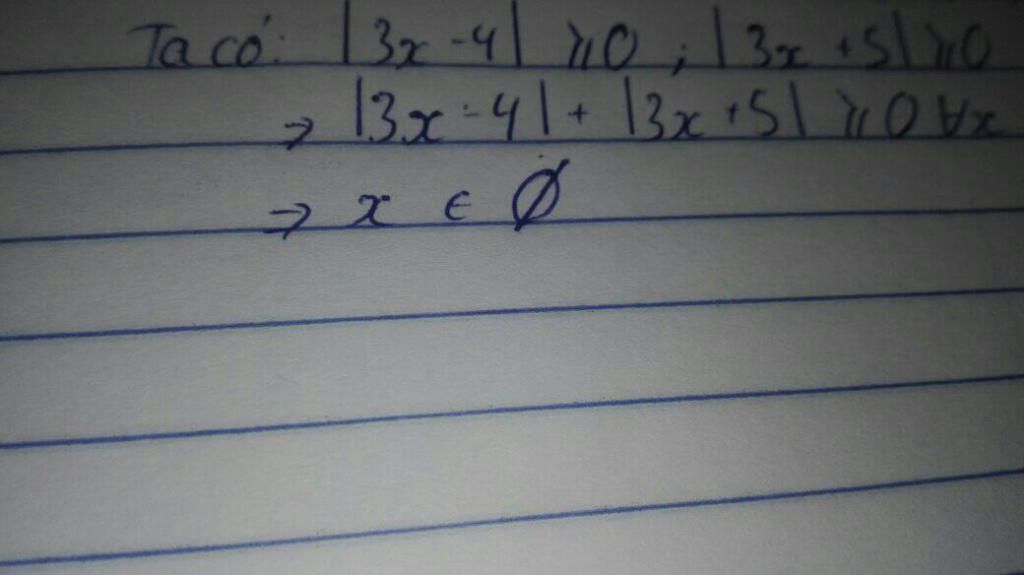 Ta có: |3x - 4| ⩾ 0 ; |3x + 5| ⩾ 0
→ |3x - 4| + |3x + 5| ⩾ 0 ∀x
→ x ∈ ∅